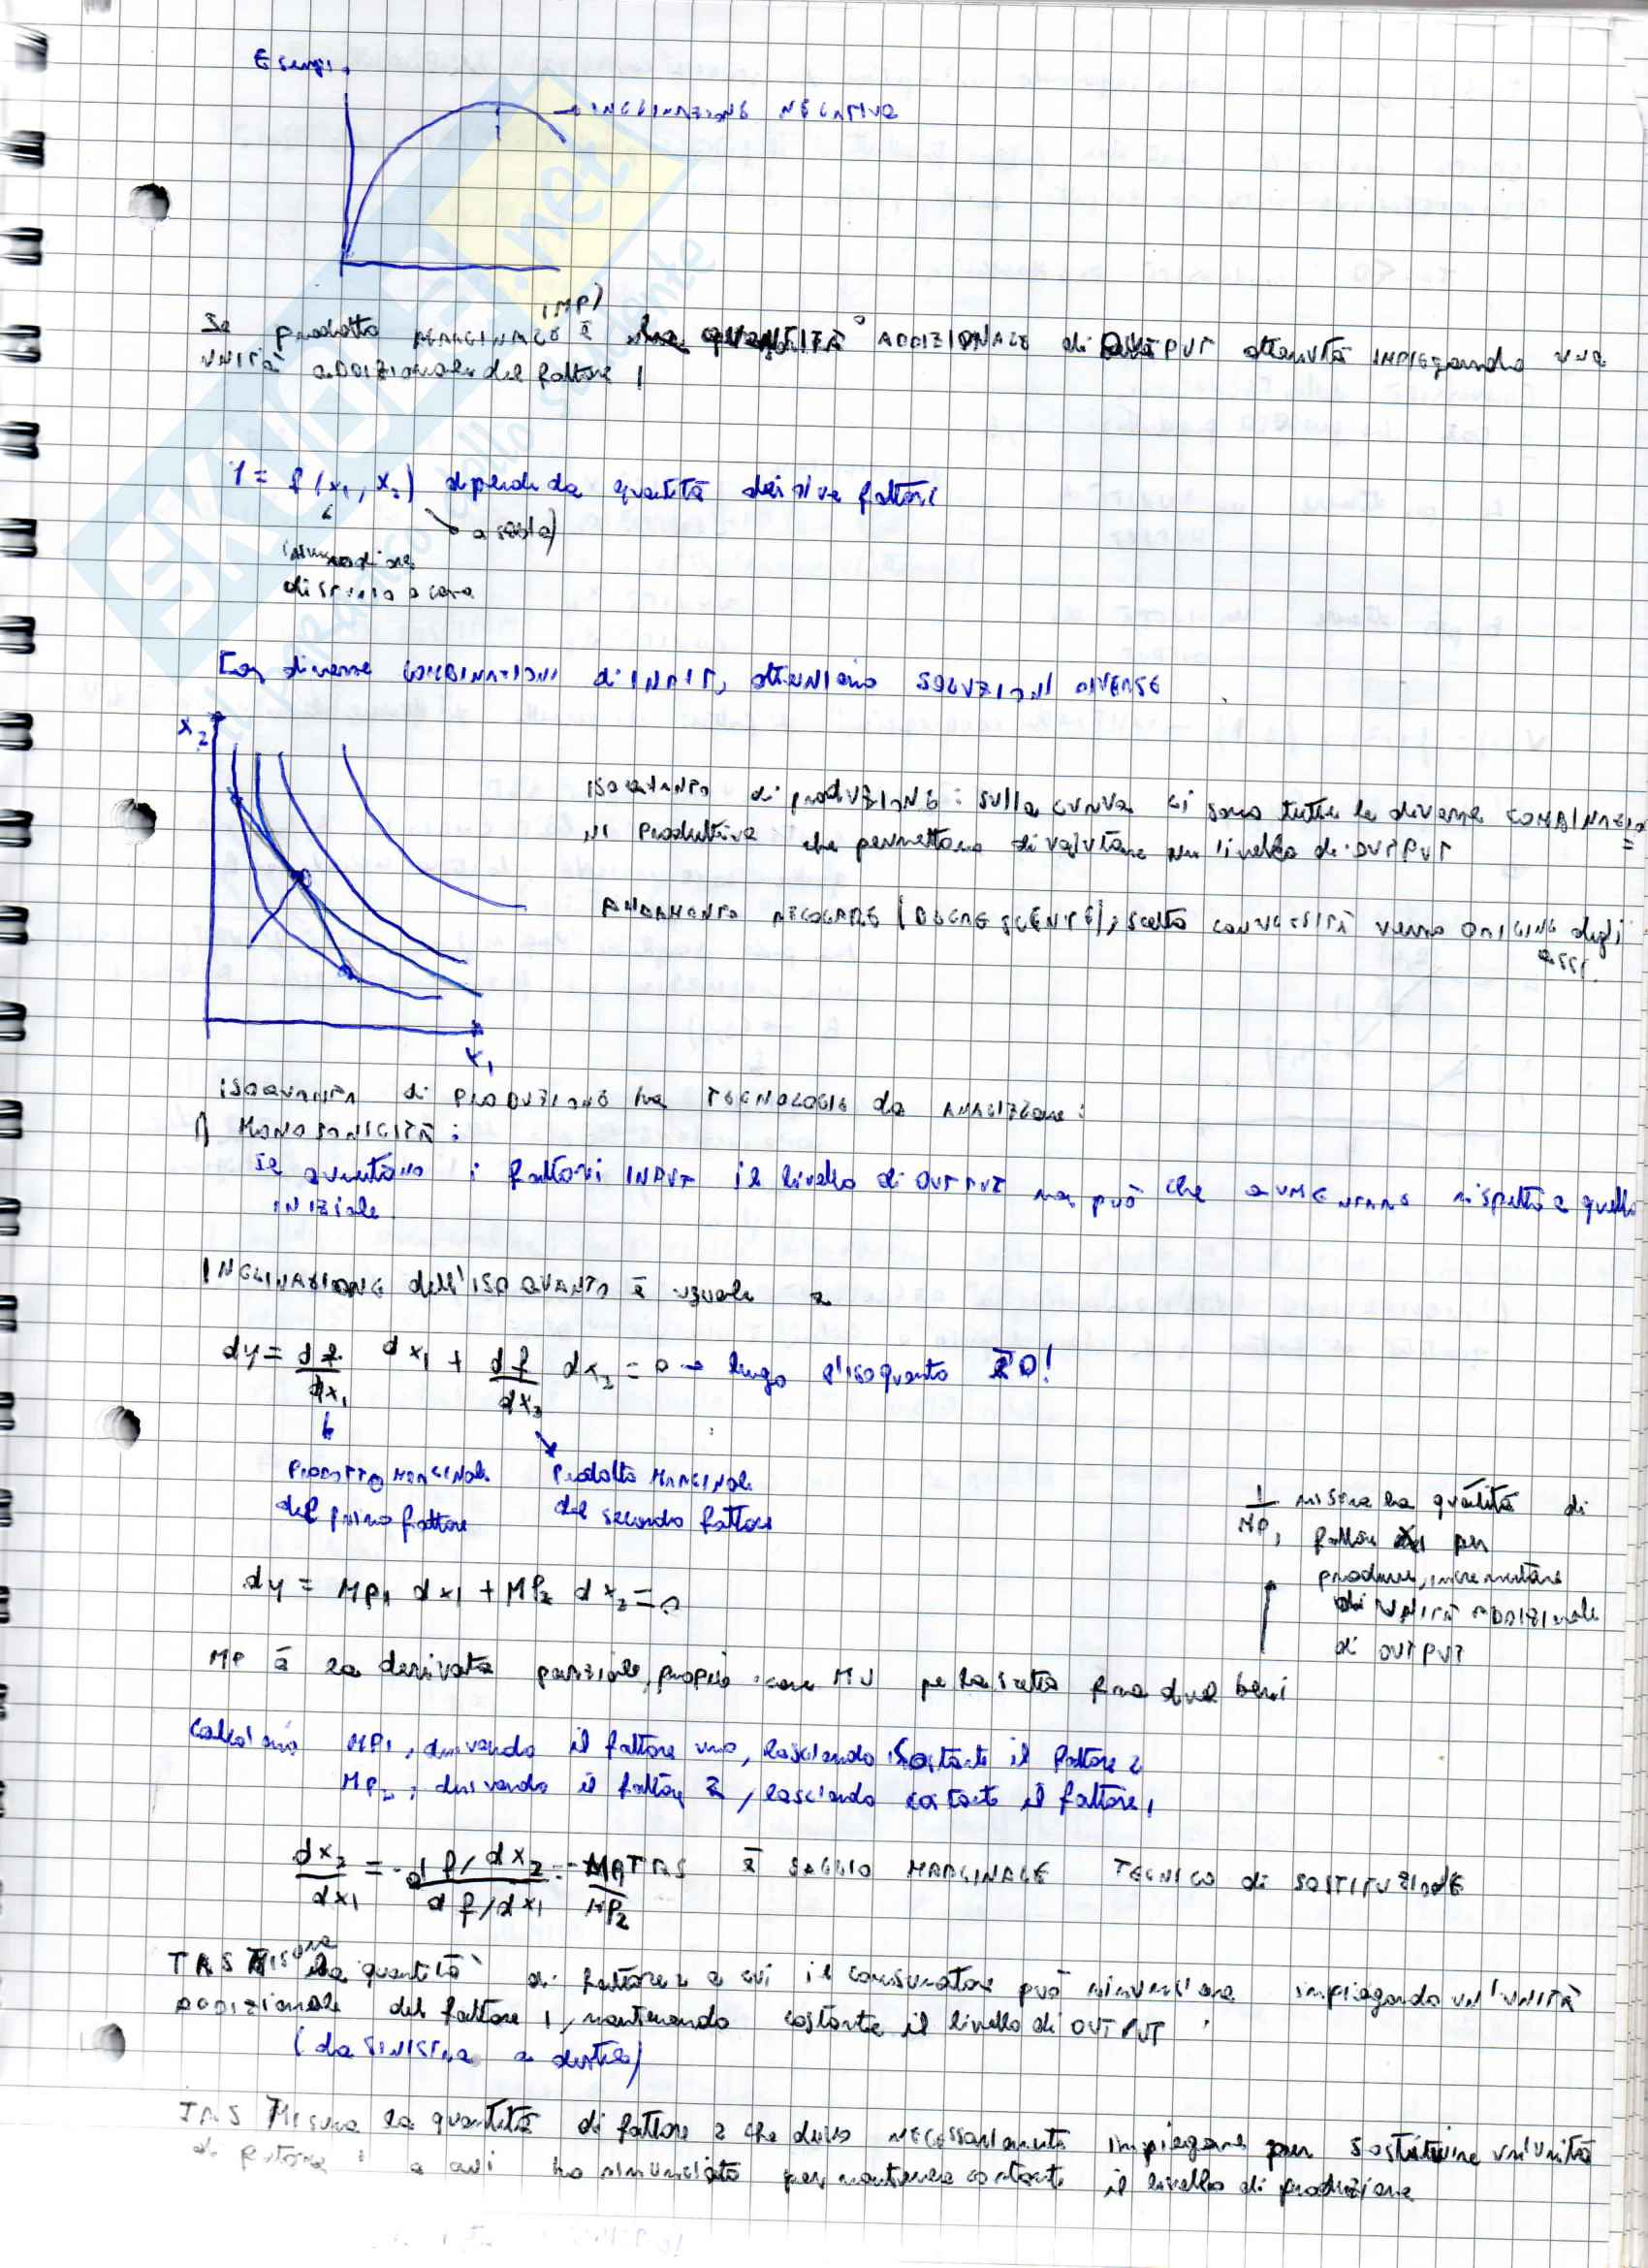 Esempi.
→ INCLINAZIONE NEGATIVA
(MP)
Se prodotto MARGINALE è la QUANTITÀ ADDIZIONALE di OUTPUT ottenuta IMPIEGando una
UNITÀ ADDIZIONALE del fattore 1
Y = f(x₁, x₂) dipende da quantità dei due fattori
a scelta
Con diverse COMBINAZIONI di INPUT, otteniamo SOLUZIONI DIVERSE
x₂
ISOQUANTO di PRODUZIONE: sulla CURVA ci sono tutte le diverse COMBINAZIO=
NI Produttive che permettono di valutare un livello di OUTPUT
ANDAMENTO REGOLARE (DECRESCENTE), scelta CONVESSITÀ verso ORIGINE degli
assi.
x₁
ISOQUANTA di PRODUZIONE ha TECNOLOGIE da ANALIZZare:
1) MONOTONICITÀ:
se aumentano i fattori INPUT il livello di OUTPUT non può che AUMENTARE rispetto a quello
INIZiale
INCLINAZIONE dell'ISOQUANTO è uguale a
dy = df/dx₁ dx₁ + df/dx₂ dx₂ = 0 → lungo l'isoquanto È 0!
PRODOTTO MARGINALE Prodotto MARGINALE
del primo fattore del secondo fattore
1/MP₁ misura la quantità di
fattore x₁ per
produrre, incrementare
di UNITÀ ADDIZIONALE
di OUTPUT
dy = MP₁ dx₁ + MP₂ dx₂ = 0
MP è la derivata parziale, proprio come MU per la scelta fra due beni
Calcoliamo MP₁, derivando il fattore uno, lasciando costante il fattore 2
MP₂, derivando il fattore 2, lasciando costante il fattore 1
dx₂/dx₁ = - df/dx₂ / df/dx₁ = - MP₁/MP₂ TRS è SAGGIO MARGINALE TECNICO di SOSTITUZIONE
TRS Misura la quantità di fattore 2 a cui il consumatore può rinunciare impiegando un'UNITÀ
ADDIZIONALE del fattore 1, mantenendo costante il livello di OUTPUT
(da SINISTRA a destra)
TRS Misura la quantità di fattore 2 che devo necessariamente impiegare per sostituire un'unità
di fattore 1 a cui ho rinunciato per mantenere costante il livello di produzione
SKUOLA.net